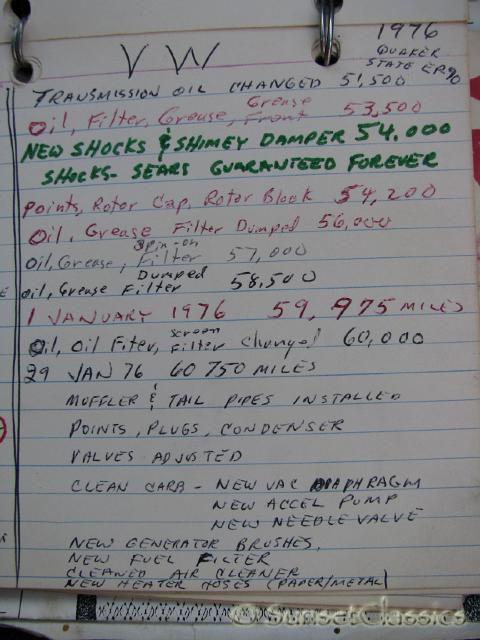 1976
VW
QUAKER
STATE EP90
TRANSMISSION OIL CHANGED 51,500
Oil, Filter, Grease, Grease Front 53,500
NEW SHOCKS & SHIMEY DAMPER 54,000
SHOCKS- SEARS GUARANTEED FOREVER
Points, Rotor Cap, Rotor Block 54,200
Oil, Grease Filter Dumped 56,000
Oil, Grease, Spin-on Filter 57,000
Oil, Grease Filter Dumped 58,500
1 JANUARY 1976 59,975 MILES
Oil, Oil Fiter, Screen Filter Changed 60,000
29 JAN 76 60 750 MILES
MUFFLER & TAIL PIPES INSTALLED
POINTS, PLUGS, CONDENSER
VALVES ADJUSTED
CLEAN CARB - NEW VAC DIAPHRAGM
NEW ACCEL PUMP
NEW NEEDLE VALVE
NEW GENERATOR BRUSHES,
NEW FUEL FILTER
CLEANED AIR CLEANER
NEW HEATER HOSES (PAPER/METAL)
©SunsetClassics